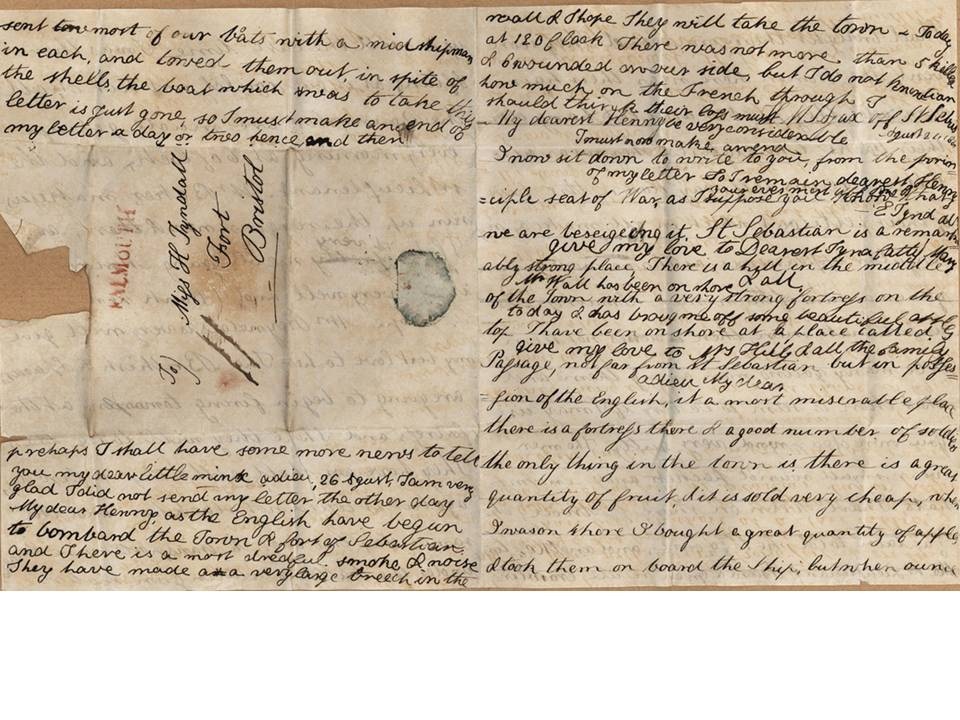 sent most of our bâts with a midshipman
in each, and towed them out, in spite of
the shells, the boat which was to take this
letter is just gone, so I must make an end to
my letter a day or two hence and then
FALMOUTH
To
Miss H Tyndall
Fort
Bristol
prehaps I shall have some more news to tell
you my dear little minx adieu, 26 August, I am very
glad I did not send my letter the other day
My dear Henny, as the English have begun
to bombard the Town & fort of Sebastian,
and There is a most dredful smoke & noise
They have made a very large breech in the
wall & I hope They will take the town To day
at 12 O Clock There was not more than 5 killed
& 6 wounded on our side, but I do not know
how much on the French through I
should think their loss must
be very considerable
My dearest Henny
of St Sebas
I must now make an end
I now sit down to write to you, from the prin
of my letter So I remain dearest Henny
=ciple seat of War, as I suppose you know that
your ever most
E Tyndall
we are beseigeing it, St Sebastian is a remark
give my love to Dearest Tyna Catty Mary
ably strong place, There is a hill in the middle
& all
Mr Wall has been on shore
of the Town with a very strong fortress on the
to day & has broug me off some beautiful apples
top I have been on shore at a place called
give my love to Mrs Hill & all the family
Passage, not far from St Sebastian but in posses=
adieu My dear
=sion of the English, it a most miserable place
there is a fortress there & a good number of soldiers
the only thing in the town is, there is a great
quantity of fruit, & it is sold very cheap, when
I was on shore I bought a great quantity of apples
& took them on board the Ship, but when our